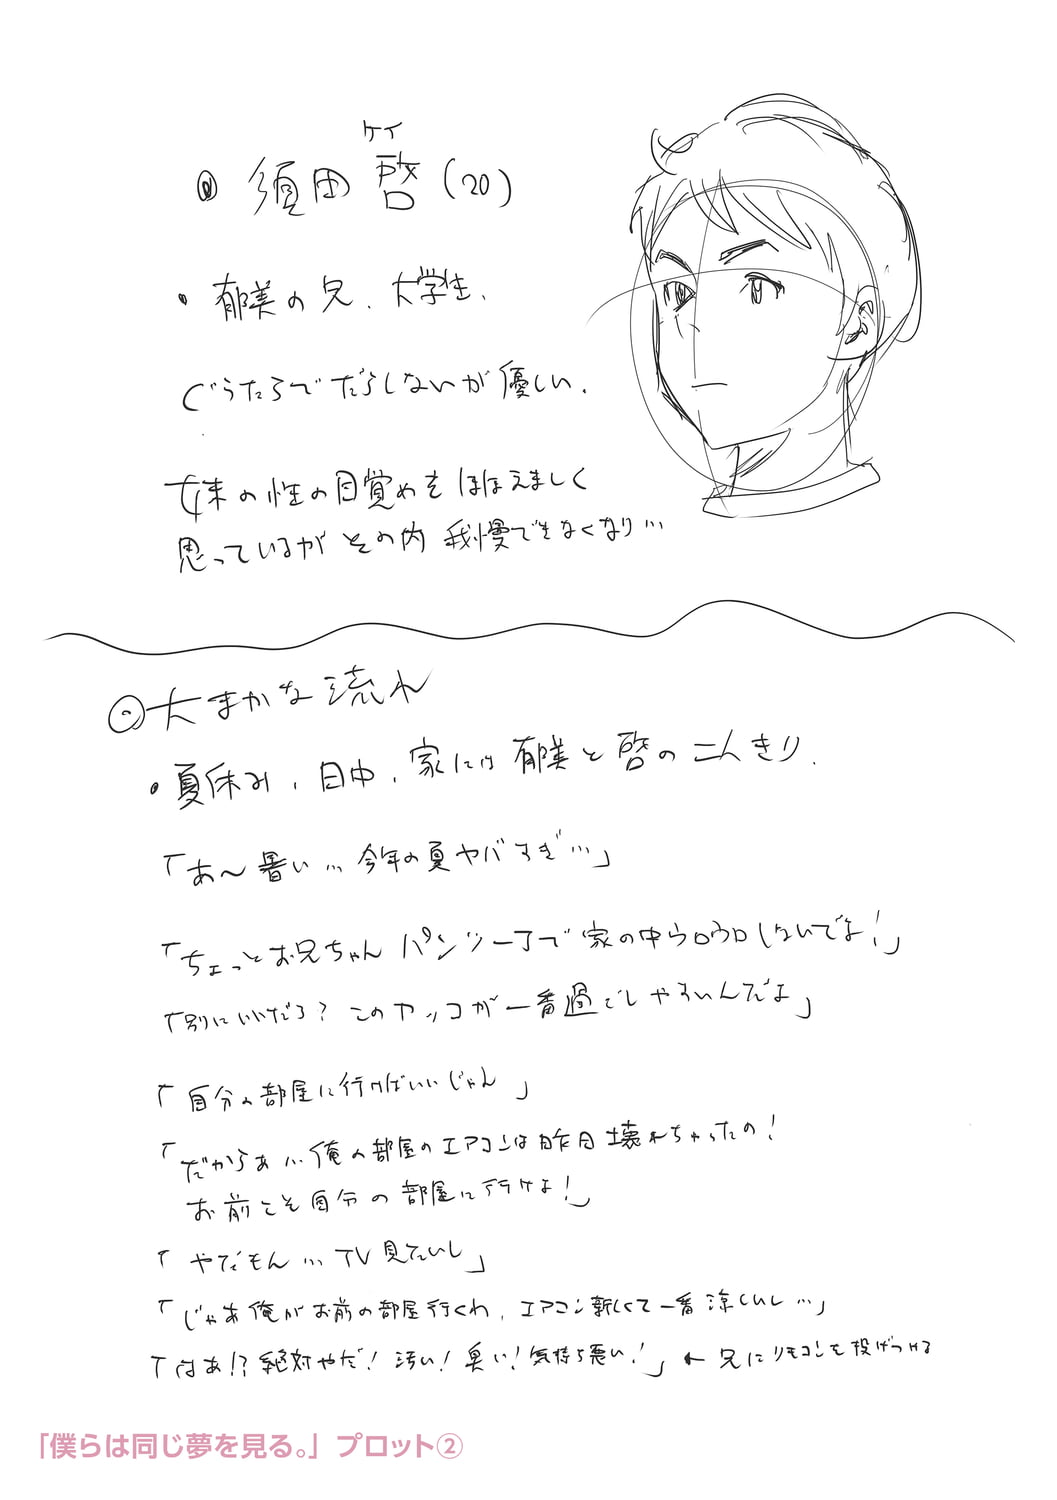 ケイ
◎ 須田 啓(20)
・郁美の兄、大学生、
ぐうたらでだらしないが優しい、
妹の性の目覚めをほほえましく
思っているがその内 我慢できなくなり…
◎大まかな流れ
・夏休み、日中、家には郁美と啓の二人きり、
「あ〜暑い…今年の夏ヤバすぎ…」
「ちょっとお兄ちゃん パンツ一丁で家の中ウロウロしないでよ!」
「別にいいだろ?このカッコが一番過ごしやすいんだよ」
「自分の部屋に行けばいいじゃん」
「だからぁ…俺の部屋のエアコンは昨日壊れちゃったの!
お前こそ自分の部屋に行けよ!」
「やだもん…TV見たいし」
「じゃあ俺がお前の部屋行くわ、エアコン新しくて一番涼しいし…」
「はあ!?絶対やだ!汚い!臭い!気持ち悪い!」←兄にリモコンを投げつける
「僕らは同じ夢を見る。」プロット②